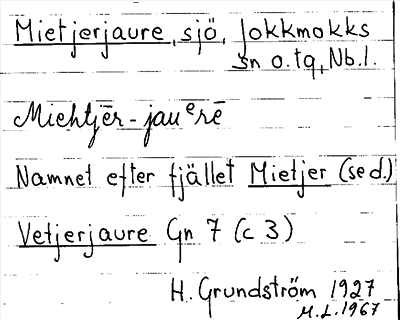 Mietjerjaure, sjö, Jokkmokks
sn o. tg, Nb. l.
Miehtjēr-jauᵉrē
Namnet efter fjället Mietjer (se d.)
Vetjerjaure Gn 7 (c 3)
H. Grundström 1927
M.L. 1967